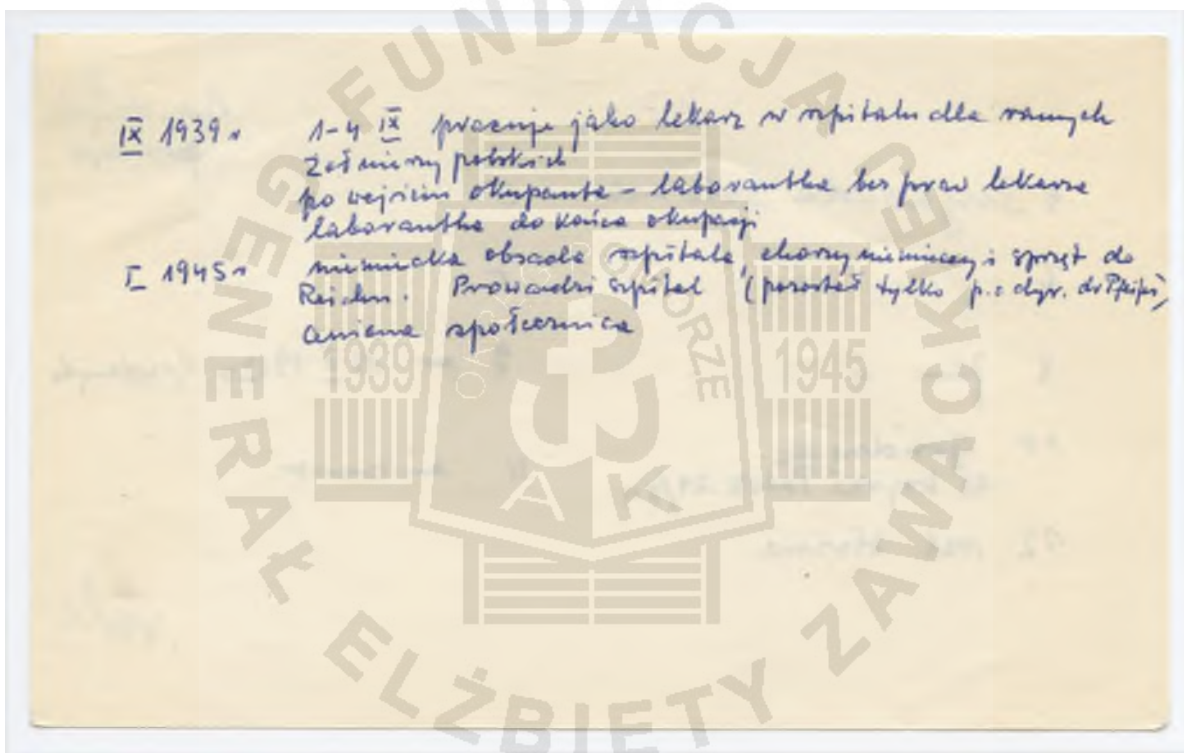 IX 1939 r 1-4 IX pracuje jako lekarz w szpitalu dla rannych
żołnierzy polskich
po wejściu okupanta - laborantka bez praw lekarza
laborantka do końca okupacji
I 1945 r niemiecka obsada szpitala, chorzy niemieccy i sprzęt do
Reichu. Prowadzi szpital (pozostał tylko p.o dyr. dr
ceniona społecznica
FUNDACJA
GENERAŁ ELŻBIETY ZAWACKIEJ
1939 1945
AK